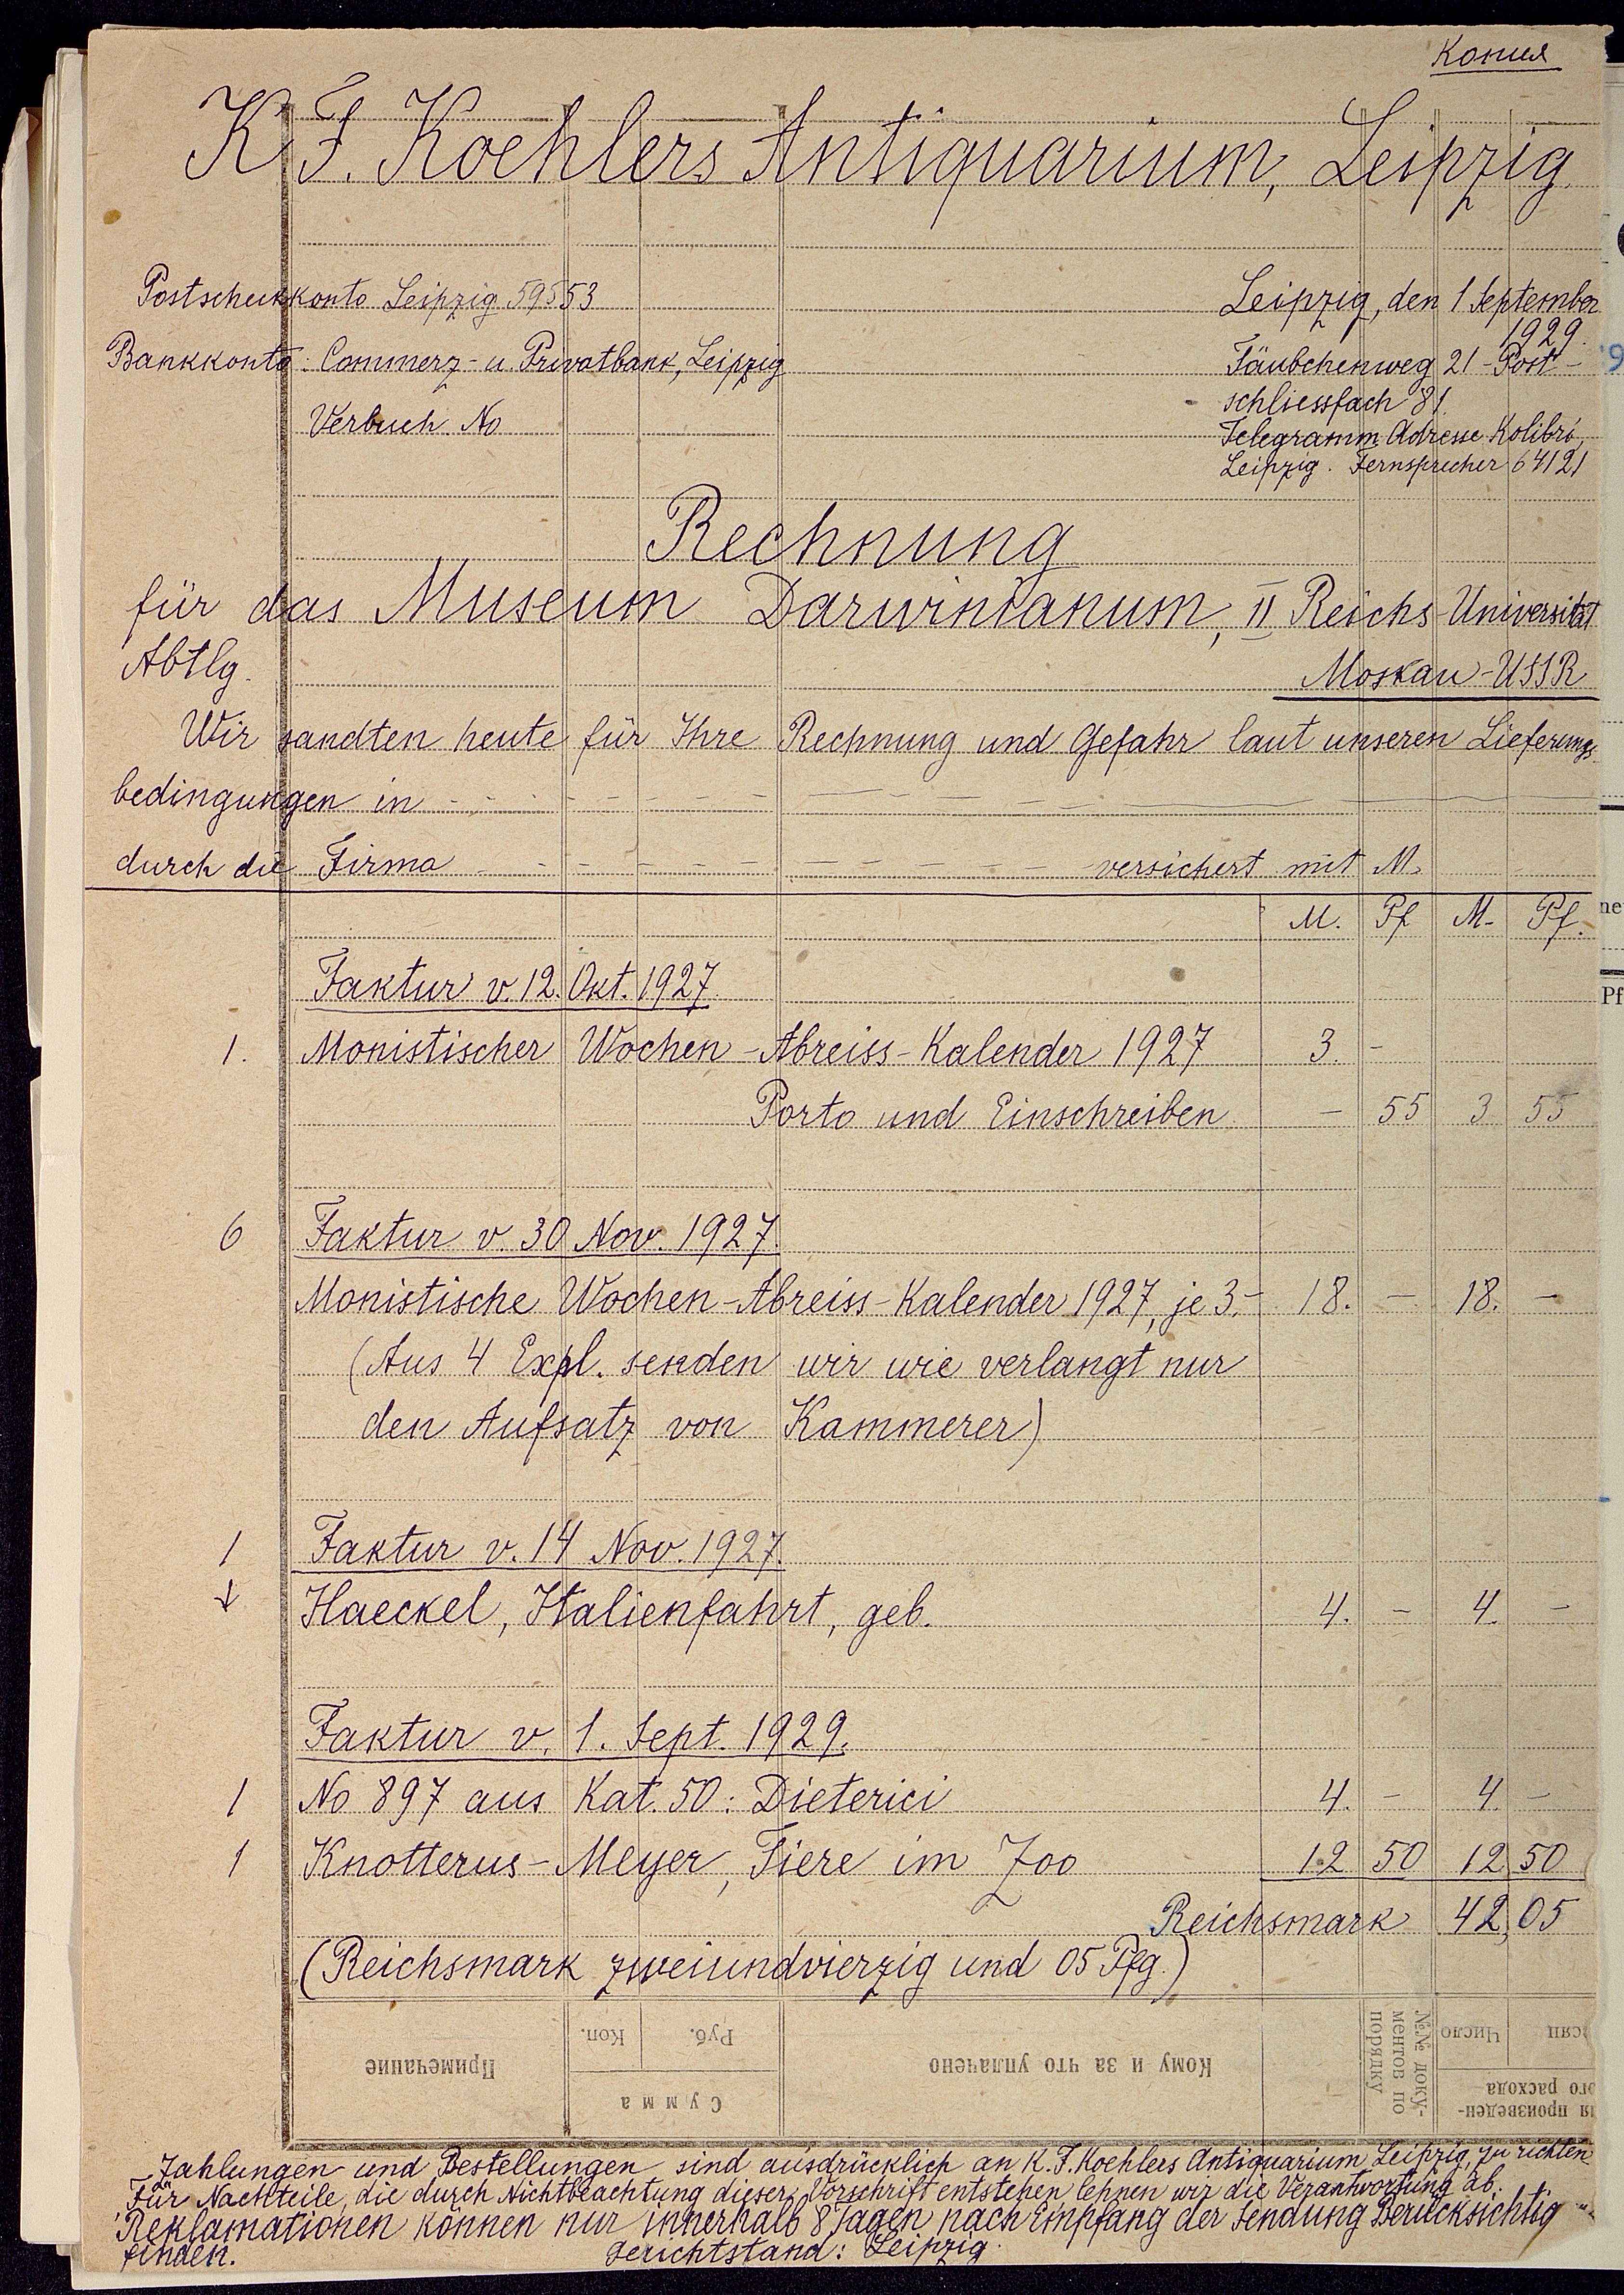 Копия
K. F. Koehlers Antiquarium, Leipzig.
Postscheckkonto Leipzig 59553
Bankkonto: Commerz- u. Privatbank, Leipzig
Verbuch. No
Leipzig, den 1 September
1929.
Täubchenweg 21 - Post-
schliessfach 81.
Telegramm Adresse Kolibri,
Leipzig. Fernsprecher 64121
Rechnung
für das Museum Darwinianum, II Reichs-Universität
Abtlg.
Moskau-USSR
Wir sandten heute für Ihre Rechnung und Gefahr laut unseren Lieferungs-
bedingungen in - - - - - -
durch die Firma - - - - - - versichert mit M.
M. Pf M. Pf.
Faktur v. 12. Okt. 1927.
1. Monistischer Wochen-Abreiss-Kalender 1927 3. -
Porto und Einschreiben - 55 3 55
6 Faktur v. 30 Nov. 1927.
Monistische Wochen-Abreiss-Kalender 1927, je 3.- 18. - 18. -
(Aus 4 Expl. senden wir wie verlangt nur
den Aufsatz von Kammerer)
1 Faktur v. 14 Nov. 1927.
↓ Haeckel, Italienfahrt, geb. 4. - 4. -
Faktur v. 1. Sept. 1929.
1 No 897 aus Kat. 50: Dieterici 4. - 4. -
1 Knotterus-Meyer, Tiere im Zoo 12 50 12 50
Reichsmark 42,05
(Reichsmark zweiundvierzig und 05 Pfg.)
Примечание
Коп. Руб.
Сумма
Кому и за что уплачено
№№ доку-
ментов по
порядку
Число
произведен-
расхода
Zahlungen und Bestellungen sind ausdrücklich an K. F. Koehlers Antiquarium, Leipzig, zu richten
Für Nachteile, die durch Nichtbeachtung dieser Vorschrift entstehen lehnen wir die Verantwortung ab.
Reklamationen können nur innerhalb 8 Tagen nach Empfang der Sendung Berücksichtig
finden. Gerichtstand: Leipzig.